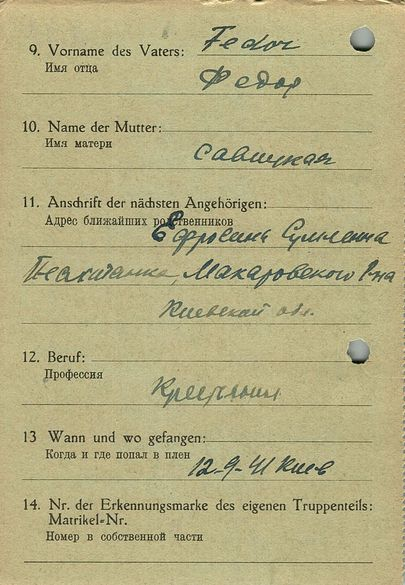 9. Vorname des Vaters: Fedor
Имя отца
Федор
10. Name der Mutter:
Имя матери
Савицкая
11. Anschrift der nächsten Angehörigen:
Адрес ближайших родственников
Ефросинья
Макаровского р-на
Киевской обл.
12. Beruf:
Профессия
Крестьянин
13 Wann und wo gefangen:
Когда и где попал в плен
12-9-41 Киев
14. Nr. der Erkennungsmarke des eigenen Truppenteils:
Matrikel-Nr.
Номер в собственной части